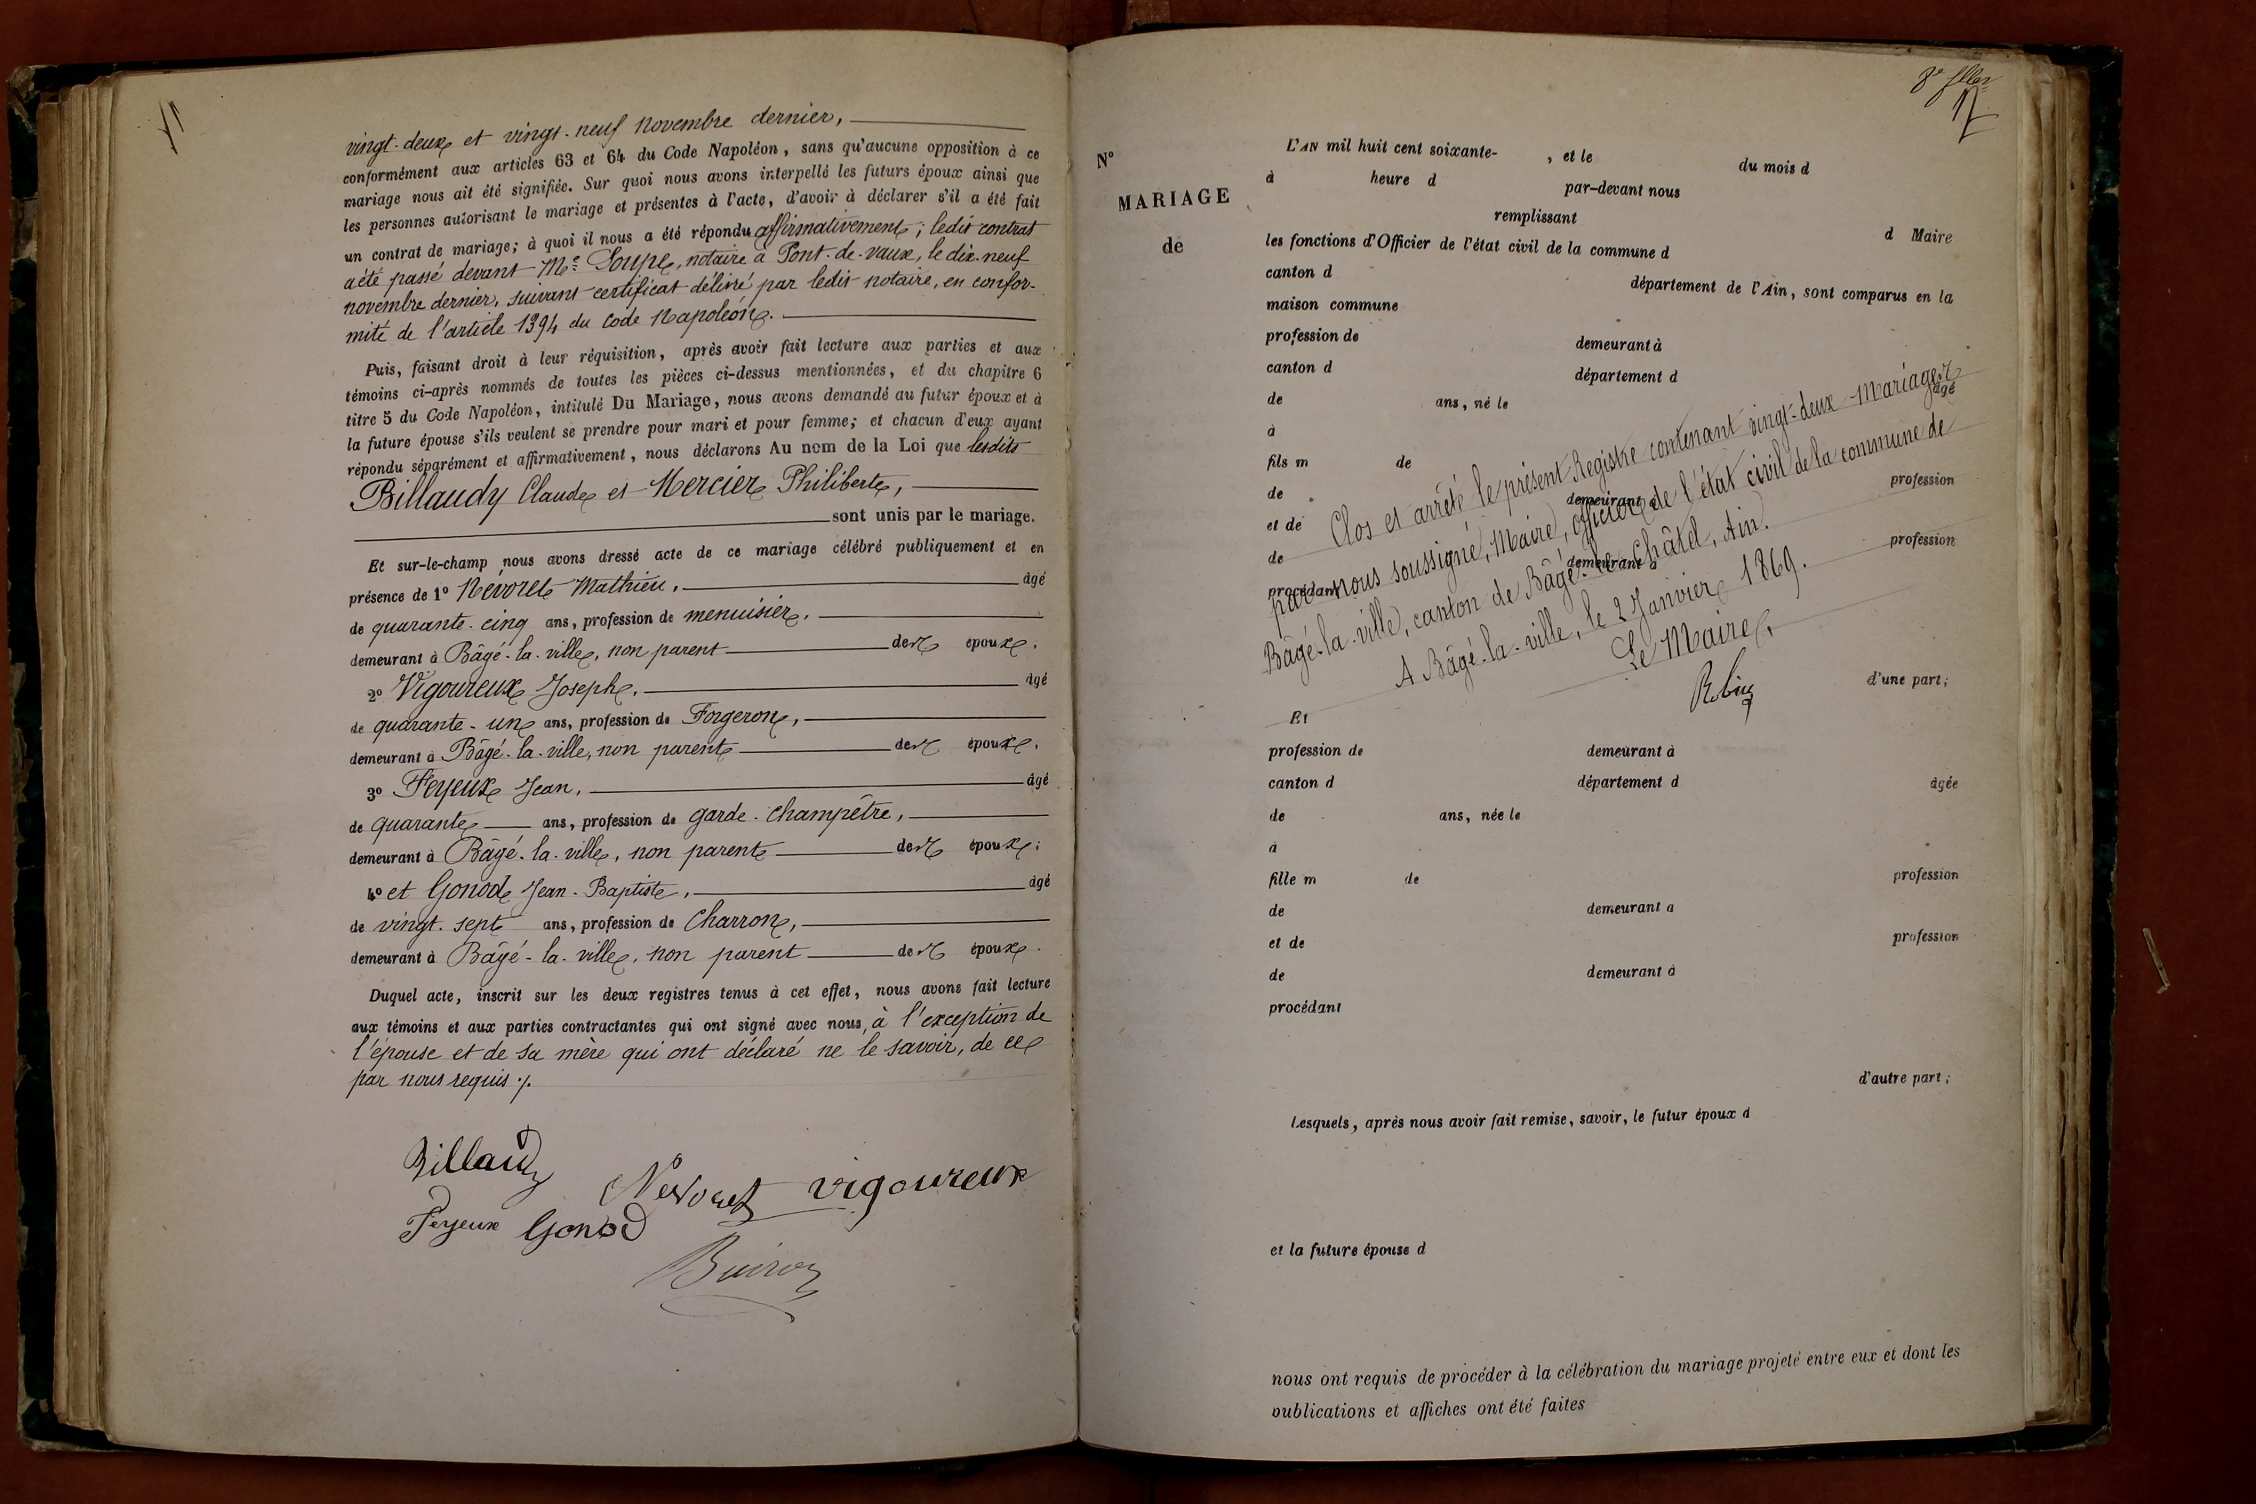 vingt-deux et vingt-neuf novembre dernier,
conformément aux articles 63 et 64 du Code Napoléon, sans qu'aucune opposition à ce
mariage nous ait été signifiée. Sur quoi nous avons interpellé les futurs époux ainsi que
les personnes autorisant le mariage et présentes à l'acte, d'avoir à déclarer s'il a été fait
un contrat de mariage; à quoi il nous a été répondu affirmativement; ledit contrat
a été passé devant Me Soupe, notaire à Pont-de-vaux, le dix-neuf
novembre dernier, suivant certificat délivré par ledit notaire, en confor-
mité de l'article 1394 du Code Napoléon.
Puis, faisant droit à leur réquisition, après avoir fait lecture aux parties et aux
témoins ci-après nommés de toutes les pièces ci-dessus mentionnées, et du chapitre 6
titre 5 du Code Napoléon, intitulé Du Mariage, nous avons demandé au futur époux et à
la future épouse s'ils veulent se prendre pour mari et pour femme; et chacun d'eux ayant
répondu séparément et affirmativement, nous déclarons Au nom de la Loi que lesdits
Billaudy Claude et Mercier Philiberte,
sont unis par le mariage.
Et sur-le-champ nous avons dressé acte de ce mariage célébré publiquement et en
présence de 1° Névoret Mathieu, âgé
de quarante-cinq ans, profession de menuisier,
demeurant à Bâgé-la-ville, non parent des époux;
2° Vigoureux Joseph, âgé
de quarante-un ans, profession de Forgeron,
demeurant à Bâgé-la-ville, non parent des époux;
3° Feyeux Jean, âgé
de quarante ans, profession de garde-champêtre,
demeurant à Bâgé-la-ville, non parent des époux;
4° et Gonod Jean-Baptiste, âgé
de vingt-sept ans, profession de Charron,
demeurant à Bâgé-la-ville, non parent des époux.
Duquel acte, inscrit sur les deux registres tenus à cet effet, nous avons fait lecture
aux témoins et aux parties contractantes qui ont signé avec nous, à l'exception de
l'épouse et de sa mère qui ont déclaré ne le savoir, de ce
par nous requis ./.
Billaudy
Nevoret Vigoureux
Feyeux Gonod
11
N°
MARIAGE
de
L'AN mil huit cent soixante- , et le du mois d
à heure d par-devant nous
remplissant d Maire
les fonctions d'Officier de l'état civil de la commune d
canton d département de l'Ain, sont comparus en la
maison commune
profession de demeurant à
canton d département d
de ans, né le âgé
à
fils m de
de demeurant à profession
et de
de demeurant à profession
procédant
Clos et arrêté le présent Registre contenant vingt-deux Mariages
par nous soussigné, Maire, officier de l'état civil de la commune de
Bâgé-la-ville, canton de Bâgé-le-Châtel, Ain.
A Bâgé-la-ville, le 2 Janvier 1869.
Le Maire,
d'une part;
Et
profession de demeurant à
canton d département d âgée
de ans, née le
à
fille m de profession
de demeurant à
et de profession
de demeurant à
procédant
d'autre part;
Lesquels, après nous avoir fait remise, savoir, le futur époux d
et la future épouse d
nous ont requis de procéder à la célébration du mariage projeté entre eux et dont les
publications et affiches ont été faites